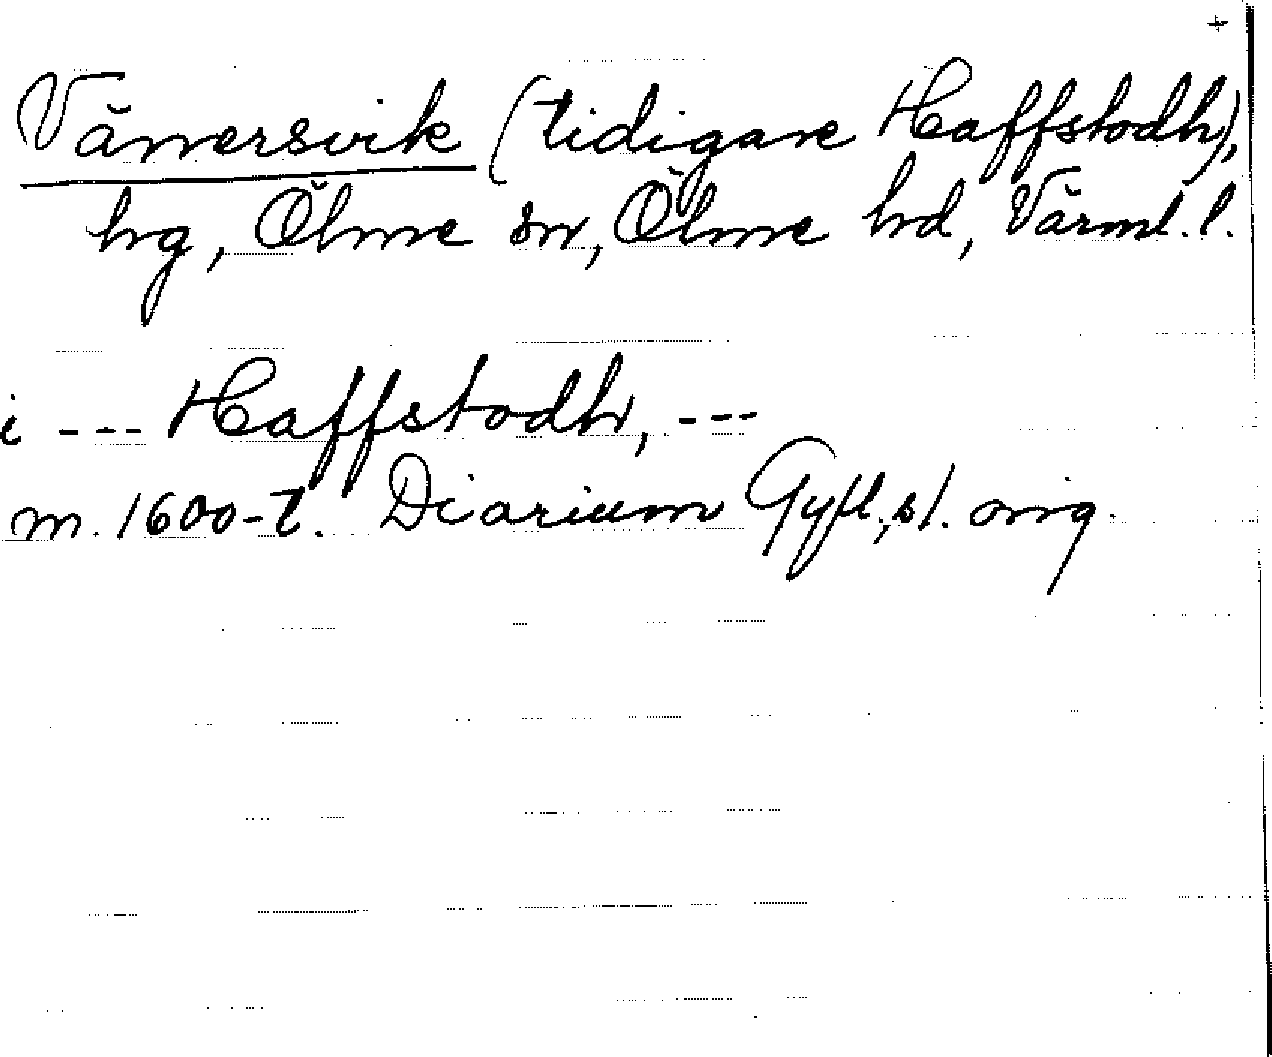 +
Vänersvik (tidigare Haffstodh),
hg, Ölme sn, Ölme hd, Värml. l.
i --- Haffstodh, ---
m. 1600-t. Diarium Gyll., s1. orig.